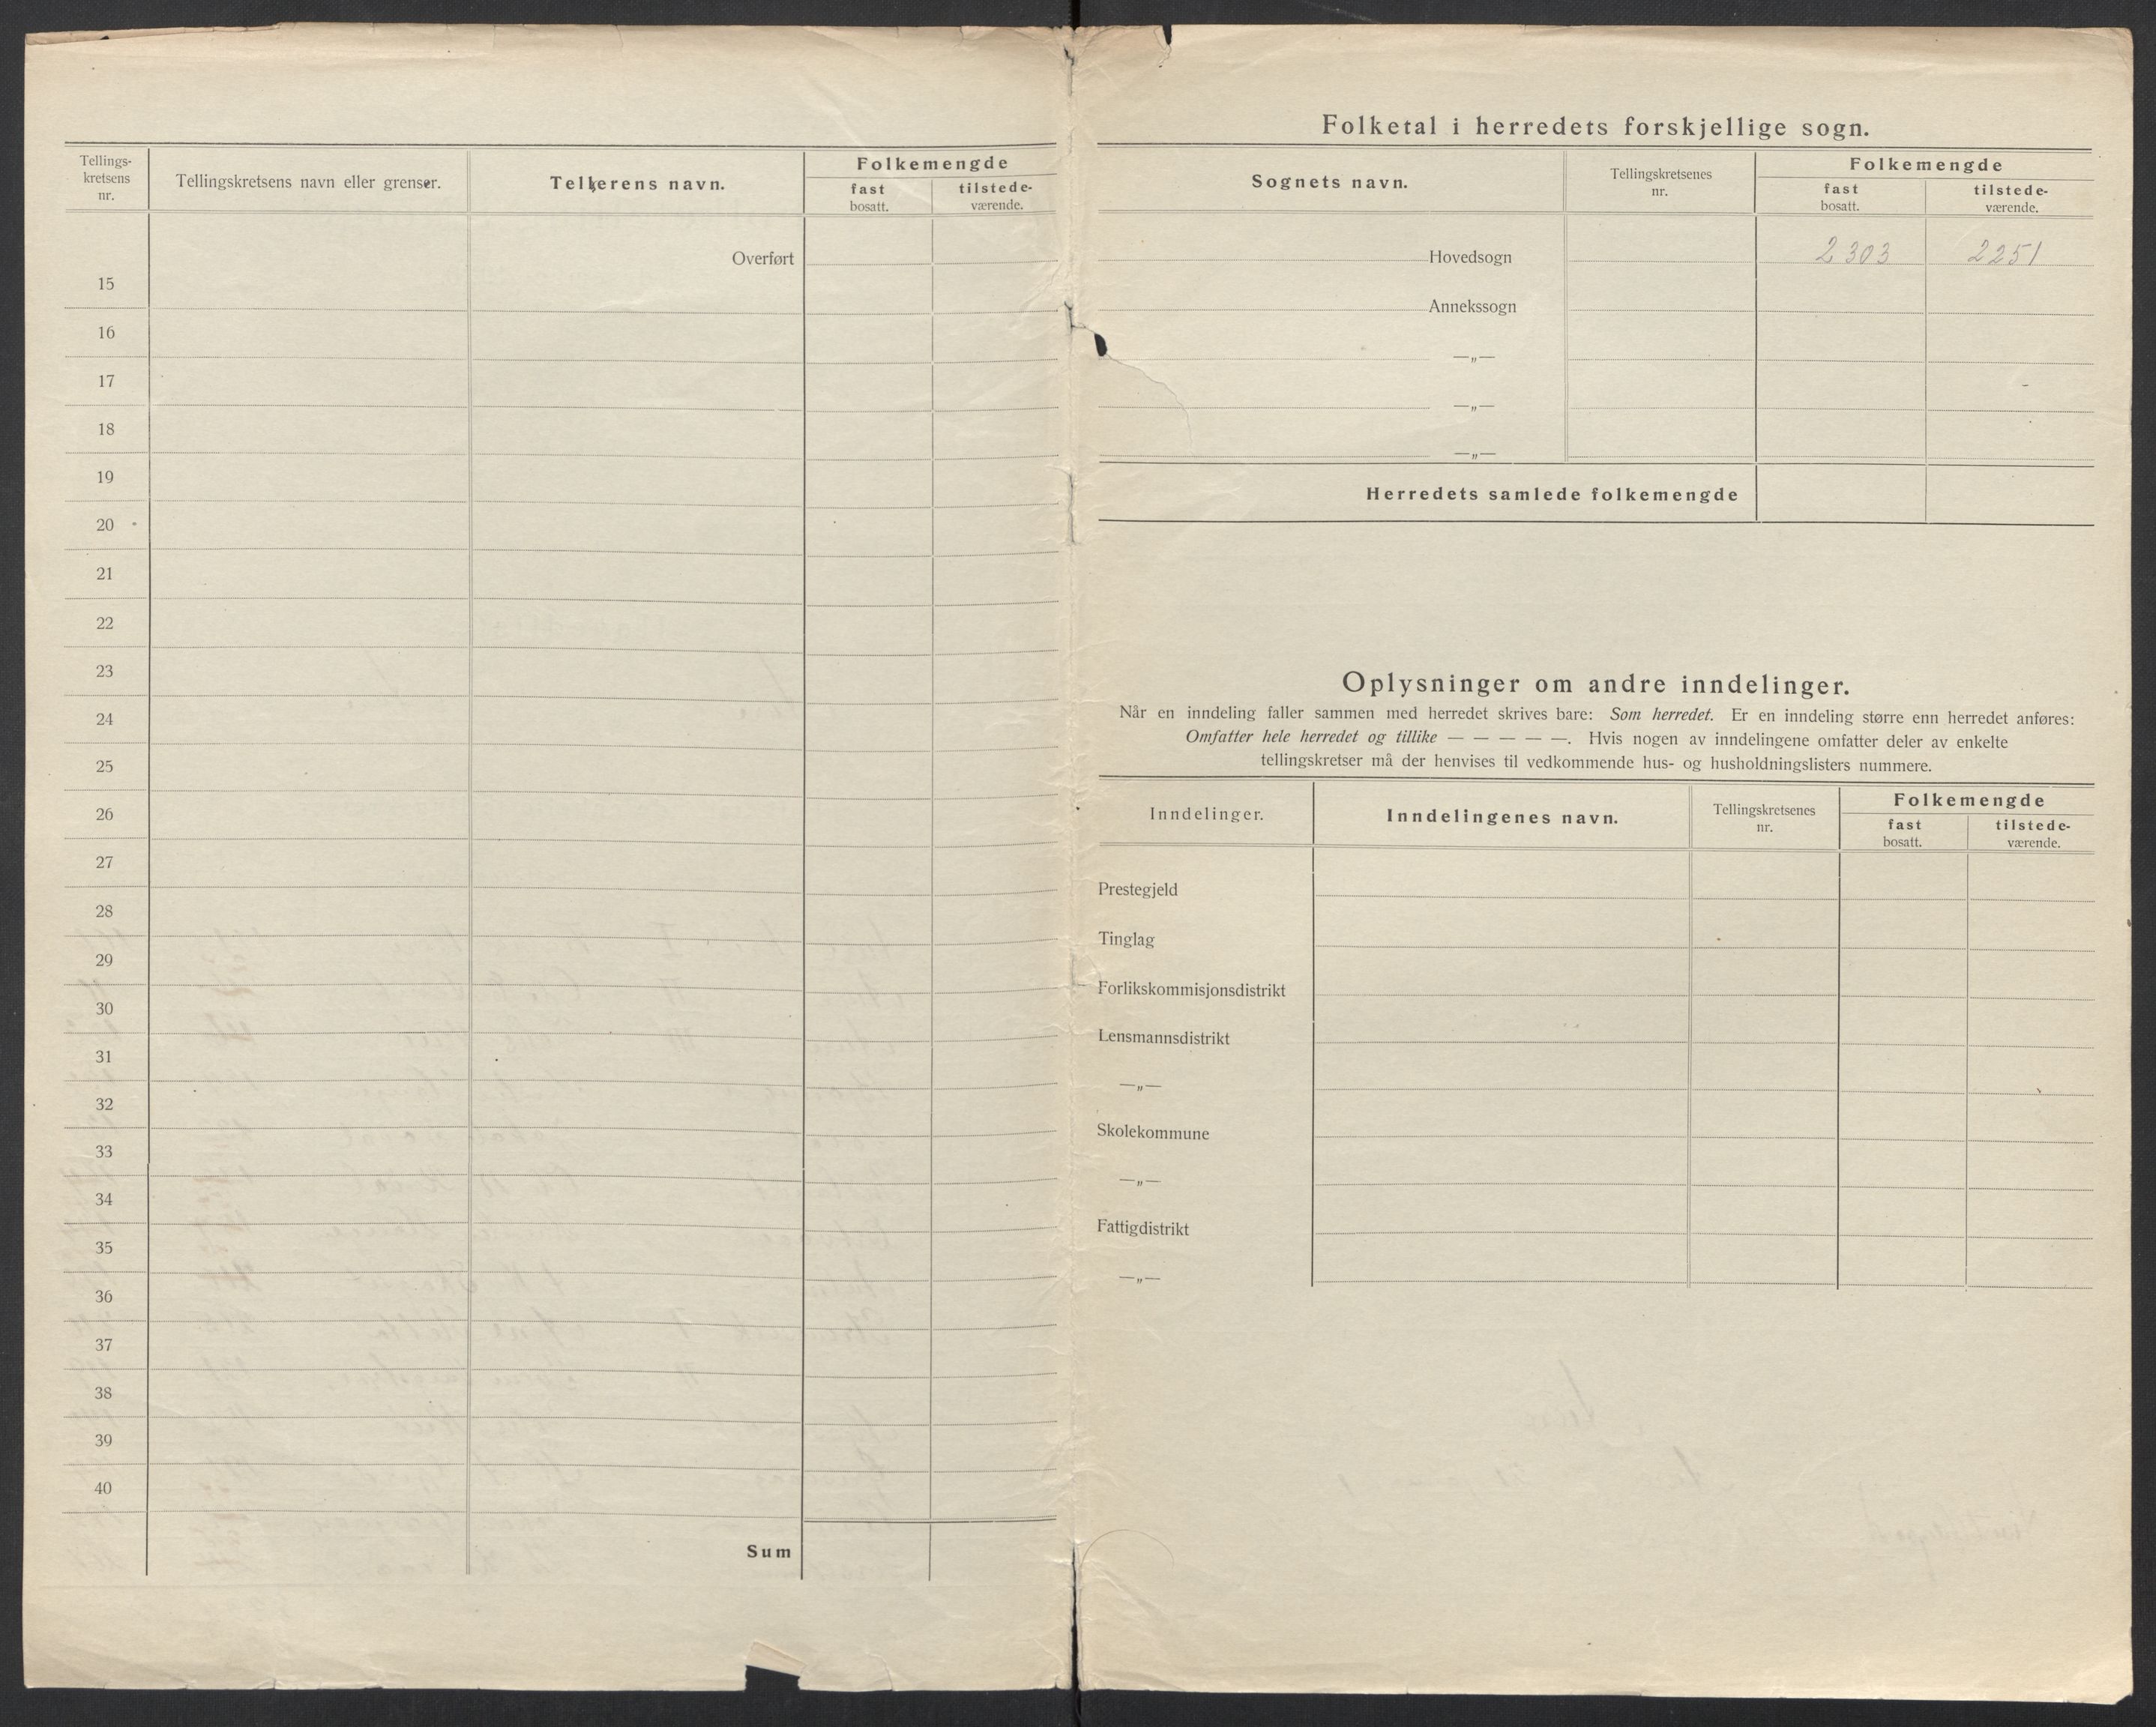 Tellings-
kretsens
nr.
Tellingskretsens navn eller grenser.
Tellerens navn.
Folkemengde
fast
bosatt.
tilstede-
værende.
Overført
15
16
17
18
19
20
21
22
23
24
25
26
27
28
29
30
31
32
33
34
35
36
37
38
39
40
Sum
Folketal i herredets forskjellige sogn.
Sognets navn.
Tellingskretsenes
nr.
Folkemengde
fast
bosatt.
tilstede-
værende.
Hovedsogn 2303 2251
Annekssogn
—„—
—„—
—„—
Herredets samlede folkemengde
Oplysninger om andre inndelinger.
Når en inndeling faller sammen med herredet skrives bare: Som herredet. Er en inndeling større enn herredet anføres:
Omfatter hele herredet og tillike — — — — —. Hvis nogen av inndelingene omfatter deler av enkelte
tellingskretser må der henvises til vedkommende hus- og husholdningslisters nummere.
Inndelinger.
Inndelingenes navn.
Tellingskretsenes
nr.
Folkemengde
fast
bosatt.
tilstede-
værende.
Prestegjeld
Tinglag
Forlikskommisjonsdistrikt
Lensmannsdistrikt
—„—
Skolekommune
—„—
Fattigdistrikt
—„—